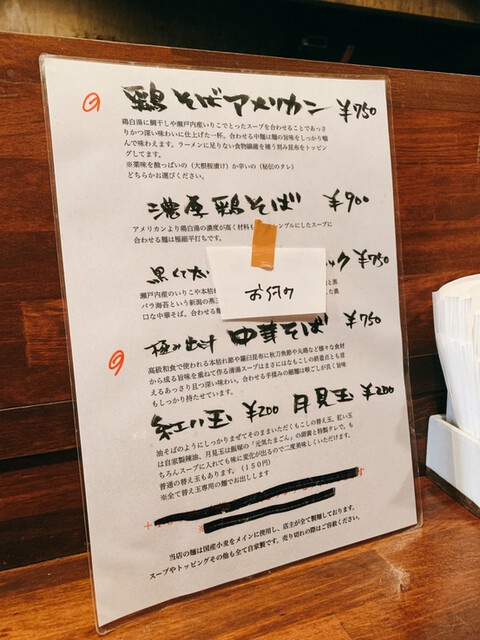 鶏そばアメリカン ¥750
鶏白湯に鯛干しや瀬戸内産いりこでとったスープを合わせることであっさ
りかつ深い味わいに仕上げた一杯。合わせる中麺は麺の旨味をしっかり噛
んで味わえます。ラーメンに足りない食物繊維を補う刻み昆布をトッピン
グしてます。
※薬味を酸っぱいの(大根桜漬け)か辛いの(秘伝のタレ)
どちらかお選びください。
濃厚鶏そば ¥900
アメリカンより鶏白湯の濃度が高く材料も シンプルにしたスープに
合わせる麺は極細平打ちです。
黒くて太 ック ¥750
お休み
瀬戸内産のいりこや本枯 と黒
バラ海苔という新潟の燕三 た濃
口な中華そば。合わせる麺
極み出汁 中華そば ¥750
高級和食で使われる本枯れ節や羅臼昆布に秋刀魚節や丸鶏など様々な食材
から成る旨味を重ねて作る清湯スープはまさにはなもこしの終着点とも言
えるあっさり且つ深い味わい。合わせる手揉みの細麺は啜ごしが良く旨味
もしっかり持たせています。
紅い玉 ¥200 月見玉 ¥200
油そばのようにしっかりまぜてそのままいただくもこしの替え玉。紅い玉
は自家製辣油、月見玉は飯塚の「元気たまごん」の卵黄と特製タレで。も
ちろんスープに入れても味に変化が出るので二度美味しくいただけます。
普通の替え玉もあります。(150円)
※全て替え玉専用の麺でお出しします
当店の麺は国産小麦をメインに使用し、店主が全て製麺しております。
スープやトッピングその他も全て自家製です。売り切れの際はご容赦ください。